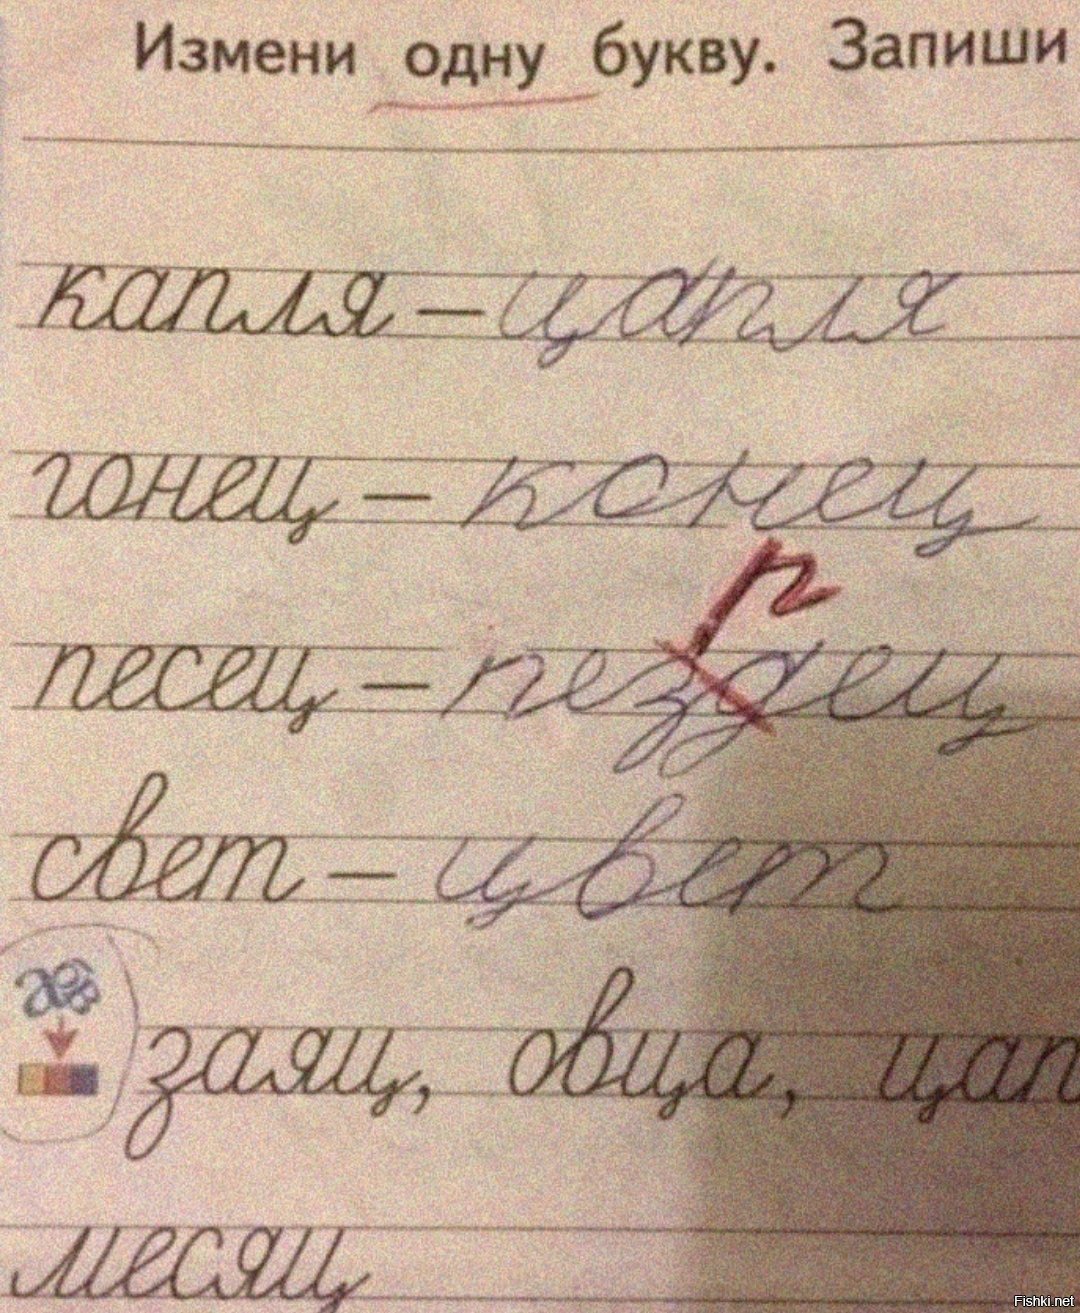 Измени одну букву. Запиши
капля – цапля
гонец – конец
р
песец – пездец
свет – цвет
заяц, овца, цап
месяц
Fishki.net